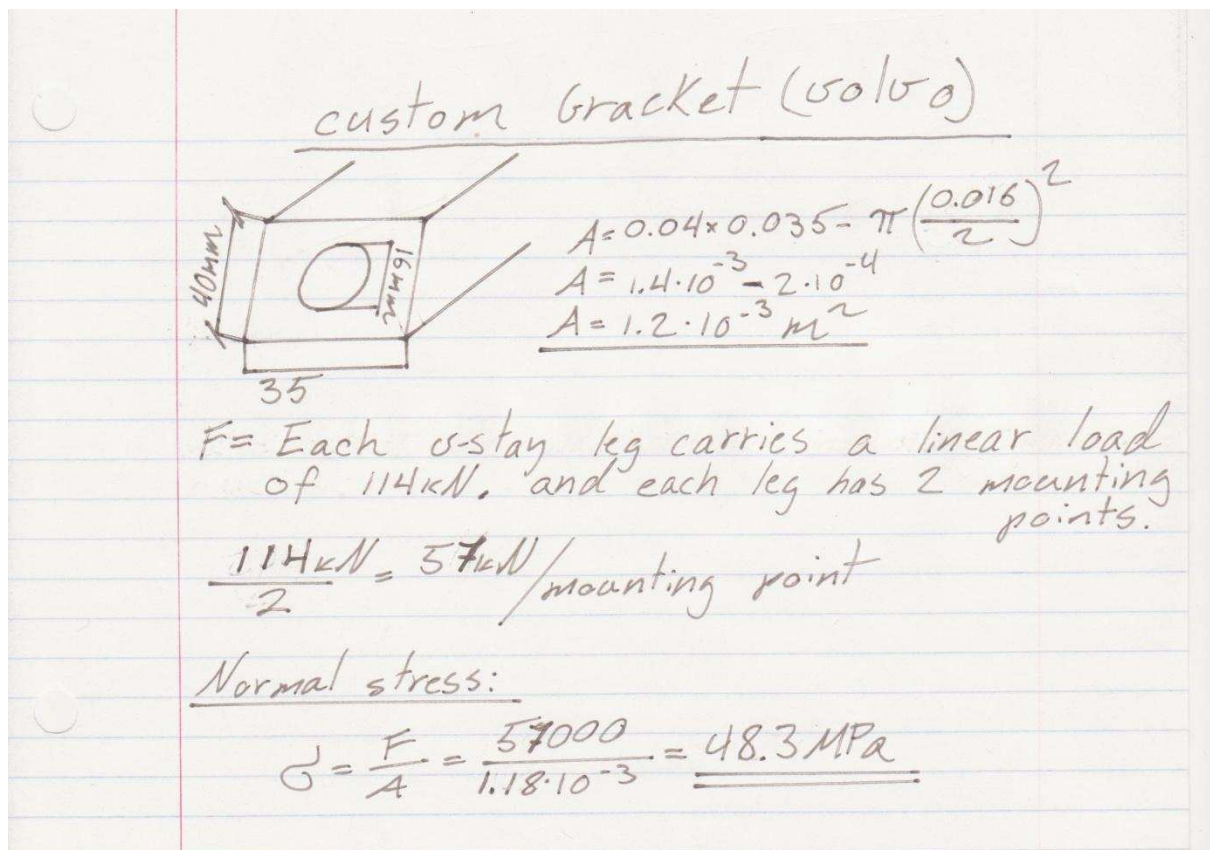 custom bracket (volvo)
40mm
16mm
35
A = 0.04 × 0.035 - π(0.016/2)²
A = 1.4·10⁻³ - 2·10⁻⁴
A = 1.2·10⁻³ m²
F = Each v-stay leg carries a linear load
of 114kN. and each leg has 2 mounting
points.
114kN/2 = 57kN/mounting point
Normal stress:
σ = F/A = 57000/1.18·10⁻³ = 48.3 MPa